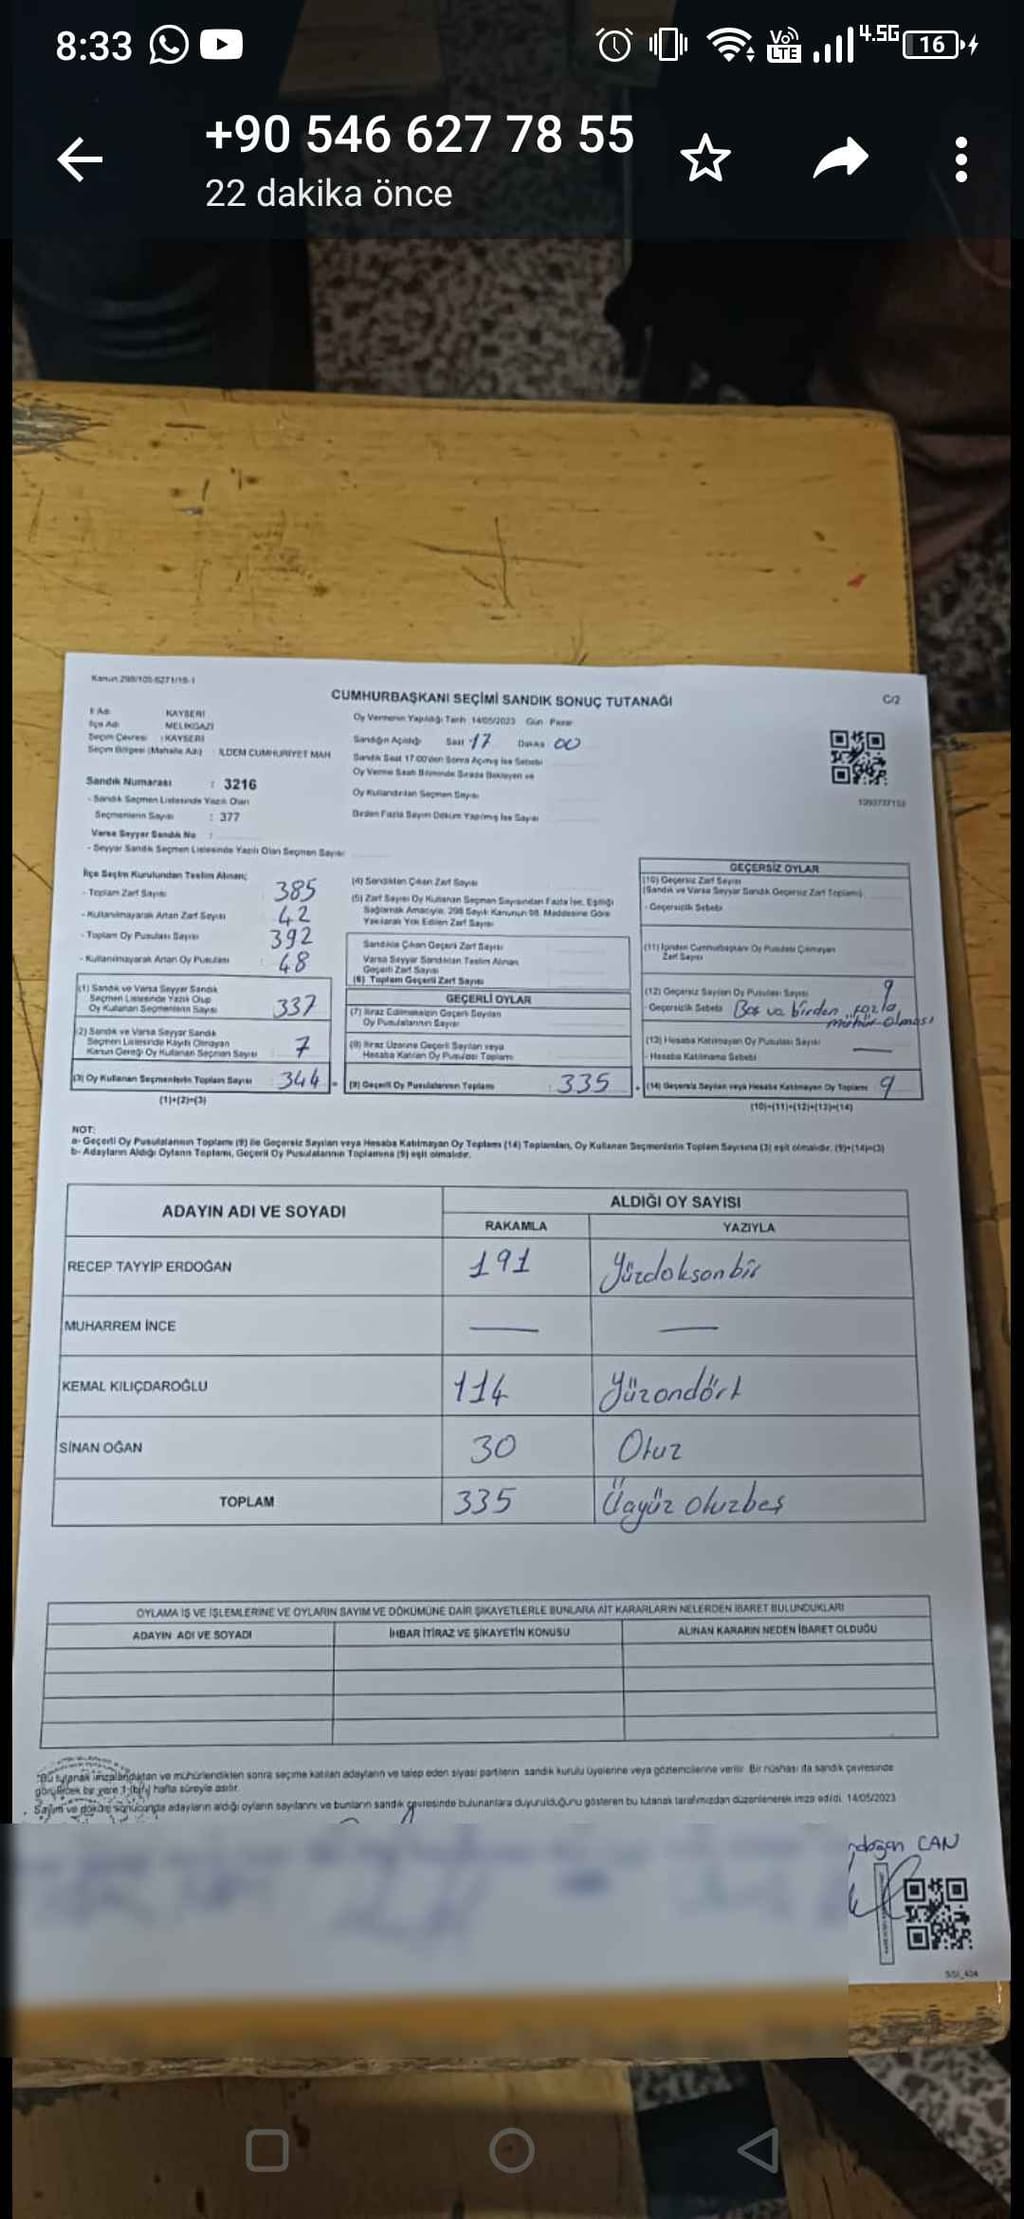 8:33
VoLTE 4.5G 16
+90 546 627 78 55
22 dakika önce
Kanun 298/105-6271/18-1
CUMHURBAŞKANI SEÇİMİ SANDIK SONUÇ TUTANAĞI
C/2
İl Adı KAYSERİ
İlçe Adı MELİKGAZİ
Seçim Çevresi : KAYSERİ
Seçim Bölgesi (Mahalle Adı) : İLDEM CUMHURİYET MAH
Sandık Numarası : 3216
- Sandık Seçmen Listesinde Yazılı Olan
Seçmenlerin Sayısı : 377
Varsa Seyyar Sandık No :
- Seyyar Sandık Seçmen Listesinde Yazılı Olan Seçmen Sayısı
Oy Vermenin Yapıldığı Tarih 14/05/2023 Gün Pazar
Sandığın Açıldığı Saat 17 Dakika 00
Sandık Saat 17.00'den Sonra Açılmış İse Sebebi
Oy Verme Saati Bitiminde Sırada Bekleyen ve
Oy Kullandırılan Seçmen Sayısı
Birden Fazla Sayım Döküm Yapılmış İse Sayısı
İlçe Seçim Kurulundan Teslim Alınan;
- Toplam Zarf Sayısı 385
- Kullanılmayarak Artan Zarf Sayısı 42
- Toplam Oy Pusulası Sayısı 392
- Kullanılmayarak Artan Oy Pusulası 48
(1) Sandık ve Varsa Seyyar Sandık
Seçmen Listesinde Yazılı Olup
Oy Kullanan Seçmenlerin Sayısı 337
(2) Sandık ve Varsa Seyyar Sandık
Seçmen Listesinde Kayıtlı Olmayan
Kanun Gereği Oy Kullanan Seçmen Sayısı 7
(3) Oy Kullanan Seçmenlerin Toplam Sayısı 344
(1)+(2)=(3)
(4) Sandıktan Çıkan Zarf Sayısı
(5) Zarf Sayısı Oy Kullanan Seçmen Sayısından Fazla İse, Eşitliği
Sağlamak Amacıyla, 298 Sayılı Kanunun 98. Maddesine Göre
Yakılarak Yok Edilen Zarf Sayısı
Sandıkta Çıkan Geçerli Zarf Sayısı
Varsa Seyyar Sandıktan Teslim Alınan
Geçerli Zarf Sayısı
(6) Toplam Geçerli Zarf Sayısı
GEÇERLİ OYLAR
(7) İtiraz Edilmeksizin Geçerli Sayılan
Oy Pusulalarının Sayısı
(8) İtiraz Üzerine Geçerli Sayılan veya
Hesaba Katılan Oy Pusulası Toplamı
(9) Geçerli Oy Pusulalarının Toplamı 335
GEÇERSİZ OYLAR
(10) Geçersiz Zarf Sayısı
(Sandık ve Varsa Seyyar Sandık Geçersiz Zarf Toplamı)
- Geçersizlik Sebebi
(11) İçinden Cumhurbaşkanı Oy Pusulası Çıkmayan
Zarf Sayısı
(12) Geçersiz Sayılan Oy Pusulası Sayısı 9
- Geçersizlik Sebebi Boş ve birden fazla
mühür olması
(13) Hesaba Katılmayan Oy Pusulası Sayısı —
- Hesaba Katılmama Sebebi
(14) Geçersiz Sayılan veya Hesaba Katılmayan Oy Toplamı 9
(10)+(11)+(12)+(13)=(14)
NOT:
a- Geçerli Oy Pusulalarının Toplamı (9) ile Geçersiz Sayılan veya Hesaba Katılmayan Oy Toplamı (14) Toplamları, Oy Kullanan Seçmenlerin Toplam Sayısına (3) eşit olmalıdır. (9)+(14)=(3)
b- Adayların Aldığı Oyların Toplamı, Geçerli Oy Pusulalarının Toplamına (9) eşit olmalıdır.
ADAYIN ADI VE SOYADI
ALDIĞI OY SAYISI
RAKAMLA YAZIYLA
RECEP TAYYİP ERDOĞAN 191 Yüzdoksanbir
MUHARREM İNCE — —
KEMAL KILIÇDAROĞLU 114 Yüzondört
SİNAN OĞAN 30 Otuz
TOPLAM 335 Üçyüz otuzbeş
OYLAMA İŞ VE İŞLEMLERİNE VE OYLARIN SAYIM VE DÖKÜMÜNE DAİR ŞİKAYETLERLE BUNLARA AİT KARARLARIN NELERDEN İBARET BULUNDUKLARI
ADAYIN ADI VE SOYADI İHBAR İTİRAZ VE ŞİKAYETİN KONUSU ALINAN KARARIN NEDEN İBARET OLDUĞU
"Bu tutanak imzalandıktan ve mühürlendikten sonra seçime katılan adayların ve talep eden siyasi partilerin sandık kurulu üyelerine veya gözlemcilerine verilir. Bir nüshası da sandık çevresinde
görülecek bir yere 1 (bir) hafta süreyle asılır.
Sayım ve döküm sonucunda adayların aldığı oyların sayılarını ve bunların sandık çevresinde bulunanlara duyurulduğunu gösteren bu tutanak tarafımızdan düzenlenerek imza edildi. 14/05/2023
CAN